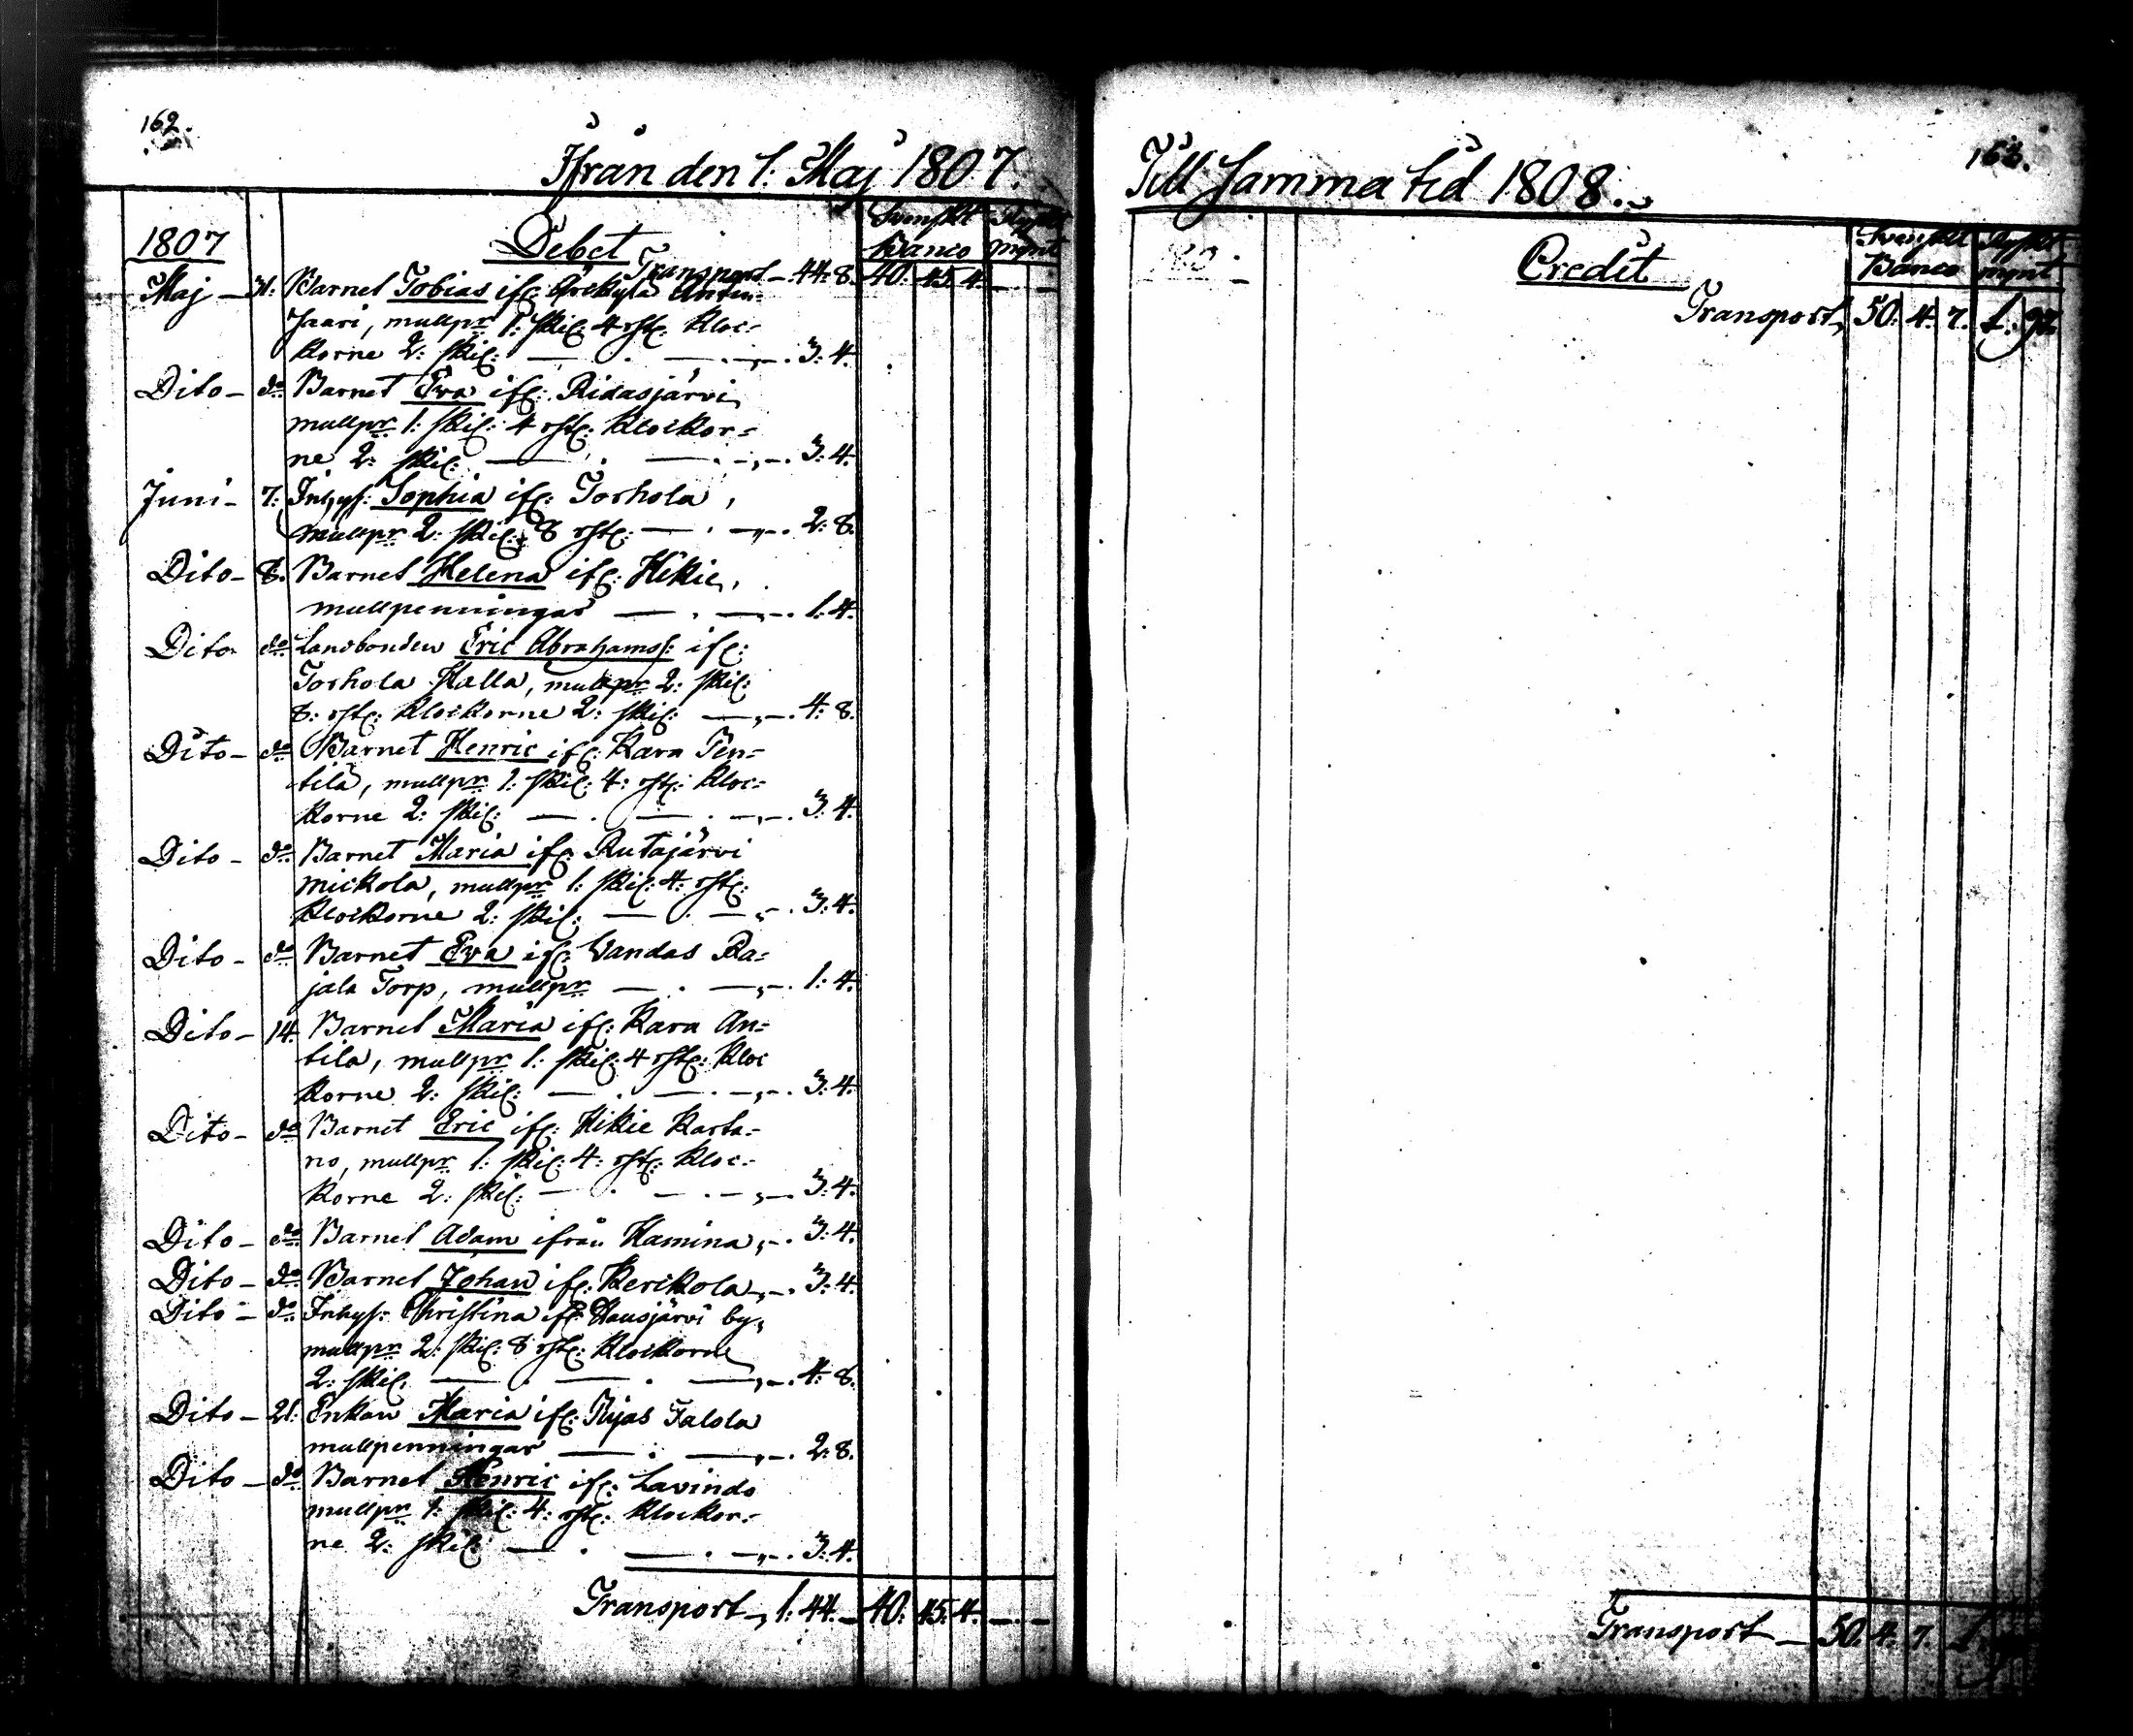 162.
Ifrån den 1. Maj 1807.
1807
Debet
Svenskt Banco
Ryskt mynt
Transport 44: 8. 40: 45. 4. — —
Maj — 31: Barnet Tobias ifr: Årekylä Anten-
Jaari, mullpr 1: skil: 4 rst: kloc-
korne 2: skil: — . — . — „ — . 3: 4.
Dito — do Barnet Eva ifr: Ridasjärvi
mullpr 1: skil: 4 rst: klockor-
ne 2: skil: — . — . — „ — . 3: 4.
Juni — 7: Inhys: Sophia ifr: Torhola,
mullpr 2: skil: 8 rst: — . — „ — . 2: 8.
Dito — 8. Barnet Helena ifr: Hikie,
mullpenningar — . — „ — . 1: 4.
Dito do Landbonden Eric Abrahams: ifr:
Torhola Halla, mullpr 2: skil:
8: rst: klockorne 2: skil: — „ — . 4: 8.
Dito — do Barnet Henric ifr: Kara Pen-
tilä, mullpr 1: skil: 4: rst: kloc-
korne 2: skil: — . — . — „ — . 3: 4.
Dito — do Barnet Maria ifr: Rutajärvi
mickola, mullpr 1: skil: 4: rst:
klockorne 2: skil: — . — „ — . 3: 4.
Dito — do Barnet Eva ifr: Vandas Ra-
jala Torp, mullpr — . — „ — . 1: 4.
Dito — 14. Barnet Maria ifr: Kara An-
tila, mullpr 1: skil: 4 rst: kloc
korne 2: skil: — . — . — „ — . 3: 4.
Dito — do Barnet Eric ifr: Hikie Karta-
no, mullpr 1: skil: 4: rst: kloc-
korne 2: skil: — . — . — „ — . 3: 4.
Dito — do Barnet Adam ifrån Hamina „ — . 3: 4.
Dito — do Barnet Johan ifr: Kerikola „ — . 3: 4.
Dito — do Inhys: Christina ifr: Hausjärvi by,
mullpr 2: skil: 8 rst: klockorne
2: skil. — . — . — „ — . 4: 8.
Dito — 21: Enkan Maria ifr: Ryas Talola
mullpenningar — . — „ — . 2: 8.
Dito — do Barnet Henric ifr: Lavindo
mullpr 1: skil: 4: rst: klockor-
ne 2: skil: — . — . — „ — . 3: 4.
Transport „ 1: 44. — 40: 45. 4. — —
163.
Till Samma tid 1808.
Credit
Svenskt Banco
Ryskt mynt
Transport, 50. 4. 7. 1:
Transport — 50. 4. 7. 1.